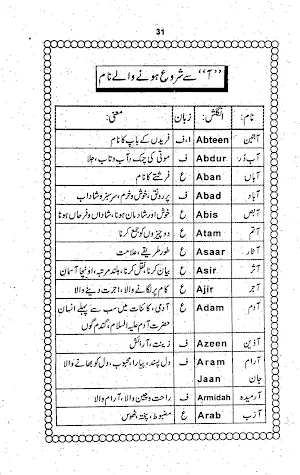 31
”آ“ سے شروع ہونے والے نام
نام: انگلش: زبان معنی:
آبتین Abteen ا، ف فریدوں کے باپ کا نام
آب دَر Abdur ف موتی کی چمک، آب و تاب، جلا
آبان Aban ع فرشتے کا نام
آباد Abad ف پر رونق، خوش و خرم، سرسبز و شاداب
آبص Abis ع خوش اور شادمان ہونا، شاداں و فرحاں ہونا
آتم Atam ع دو چیزوں کو جمع کرنا
آثار Asaar ع طور طریقے، علامت
آثر Asir ع بیان کرنا، نقل کرنا، بلند مرتبہ، اونچا آسمان
آجر Ajir ع کام پر لگانے والا، اجرت دینے والا
آدم Adam ع آدمی، کائنات میں سب سے پہلے انسان
حضرت آدم علیہ السلام، گندم گوں
آذین Azeen ف زینت، آرائش
آرام Aram ف دل پسند، پیارا، محبوب، دل کو بھانے والا
جان Jaan
آرمیدہ Armidah ف راحت و چین والا، آرام والا
آرَب Arab ع مضبوط، پختہ، ٹھوس